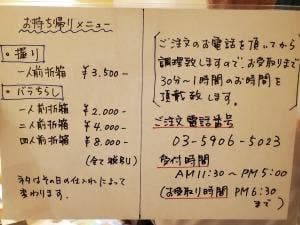 お持ち帰りメニュー
・握り
一人前折箱 ¥3.500-
・バラちらし
一人前折箱 ¥2.000-
二人前折箱 ¥4.000-
四人前折箱 ¥8.000-
(全て税別)
ネタはその日の仕入れによって
変わります。
ご注文のお電話を頂いてから
調理致しますので、お受取りまで
30分〜1時間のお時間を
頂戴致します。
ご注文電話番号
03-5906-5023
受付時間
AM11:30 〜 PM5:00
(お受取り時間 PM6:30
まで)